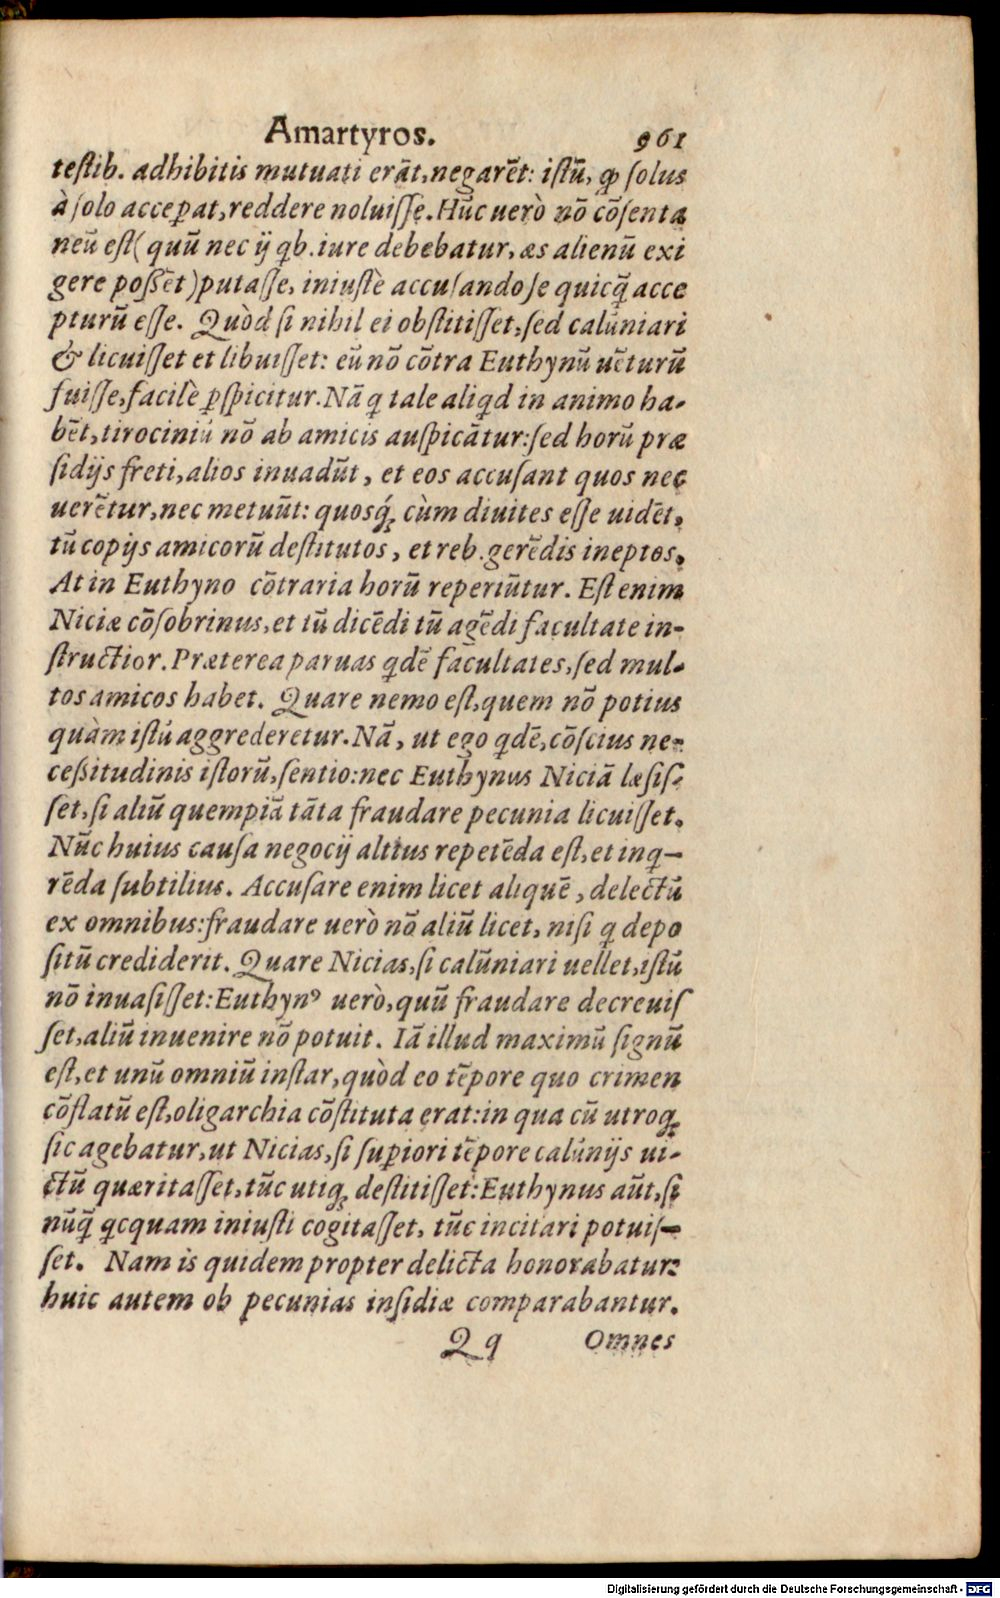 Amartyros. 961
testib. adhibitis mutuati erāt, negarēt: istū, ꝙ solus
à solo acceꝑat, reddere noluisse. Hūc uerò nō cōsenta
neū est (quū nec ij qb. iure debebatur, æs alienū exi
gere possēt) putasse, iniustè accusando se quicq̄ acce
pturū esse. Quòd si nihil ei obstitisset, sed calūniari
& licuisset et libuisset: eū nō cōtra Euthynū uēturū
fuisse, facilè ꝑspicitur. Nā q tale aliqd in animo ha-
bēt, tirociniū nō ab amicis auspicātur: sed horū præ
sidijs freti, alios inuadūt, et eos accusant quos nec
uerētur, nec metuūt: quosq́; cùm diuites esse uidēt,
tū copijs amicorū destitutos, et reb. gerēdis ineptos.
At in Euthyno cōtraria horū reperiūtur. Est enim
Niciæ cōsobrinus, et tū dicēdi tū agēdi facultate in-
structior. Præterea paruas qdē facultates, sed mul-
tos amicos habet. Quare nemo est, quem nō potius
quàm istū aggrederetur. Nā, ut ego qdē, cōscius ne-
cessitudinis istorū, sentio: nec Euthynus Niciā læsis-
set, si aliū quempiā tāta fraudare pecunia licuisset.
Nūc huius causa negocij altius repetēda est, et inq-
rēda subtilius. Accusare enim licet aliquē, delectū
ex omnibus: fraudare uerò nō aliū licet, nisi q depo
sitū crediderit. Quare Nicias, si calūniari uellet, istū
nō inuasisset: Euthynꝰ uerò, quū fraudare decreuis
set, aliū inuenire nō potuit. Iā illud maximū signū
est, et unū omniū instar, quòd eo tēpore quo crimen
cōflatū est, oligarchia cōstituta erat: in qua cū utroq;
sic agebatur, ut Nicias, si suꝑiori tēpore calūnijs ui-
ctū quæritasset, tūc utiq; destitisset: Euthynus aūt, si
nūq̄ qcquam iniusti cogitasset, tūc incitari potuis-
set. Nam is quidem propter delicta honorabatur:
huic autem ob pecunias insidiæ comparabantur.
Qq Omnes
Digitalisierung gefördert durch die Deutsche Forschungsgemeinschaft - DFG